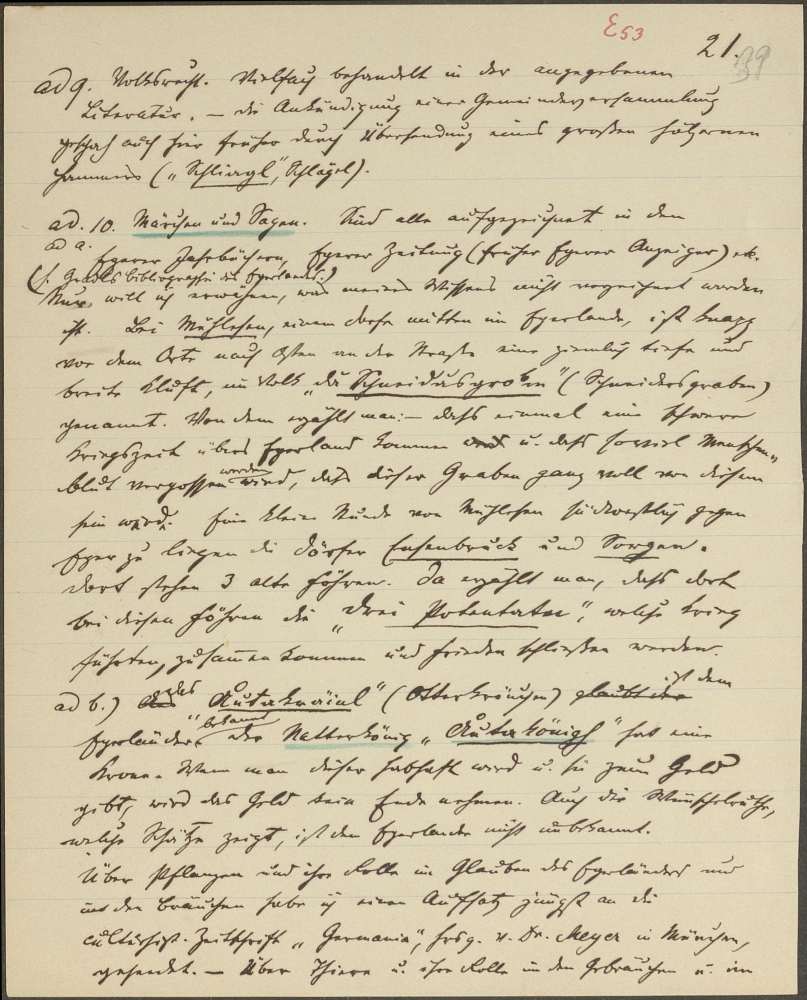 E53
21.
39
ad 9. Volksrecht. Vielfach behandelt in der angegebenen
Literatur. — die Ankündigung einer Gemeindeversammlung
geschah auch hier früher durch Übersendung eines großen hölzernen
Hammers („Schliagl", Schlägel).
ad. 10. Märchen und Sagen. Sind alle aufgezeichnet in den
ad a. Egerer Jahrbüchern, Egerer Zeitung (früher Egerer Anzeiger) etc.
(s. Gradls bibliographie des Egerlandes!)
Nur will ich erwähnen, was meines Wissens nicht verzeichnet worden
ist. Bei Mühlessen, einem Dorfe mitten im Egerlande, ist knapp
vor dem Orte nach Osten an der Straße eine ziemlich tiefe und
breite Kluft, im Volk „da Schneidasgrobn" (Schneidersgraben)
genannt. Von dem erzählt man: — dass einmal eine schwere
Kriegszeit übers Egerland kommen wird u. dass soviel Menschen-
blut vergossen werden wird, dass dieser Graben ganz voll von diesem
sein wird. Eine kleine Stunde von Mühlessen südwestlich gegen
Eger zu liegen die Dörfer Ensenbruck und Sorgen.
Dort stehen 3 alte Föhren. Da erzählt man, dass dort
bei diesen Föhren die „drei Potentaten", welche Krieg
führten, zusammen kommen und Frieden schließen werden.
ad b.) das „Autakräinl" (Otterkrönchen) glaubt der ist dem
Egerländer bekannt der Natterkönig „Autakönigh" hat eine
Krone. Wenn man dieser habhaft wird u. sie zum Geld
gibt, wird das Geld kein Ende nehmen. Auch die Wünschelruthe,
welche Schätze zeigt, ist dem Egerlander nicht unbekannt.
Über Pflanzen und ihre Rolle im Glauben des Egerländers und
in den Bräuchen habe ich einen Aufsatz jüngst an die
culturhist. Zeitschrift „Germania", hrsg. v. Dr. Meyer in München,
gesendet. — Über Thiere u. ihre Rolle in den Gebräuchen u. im